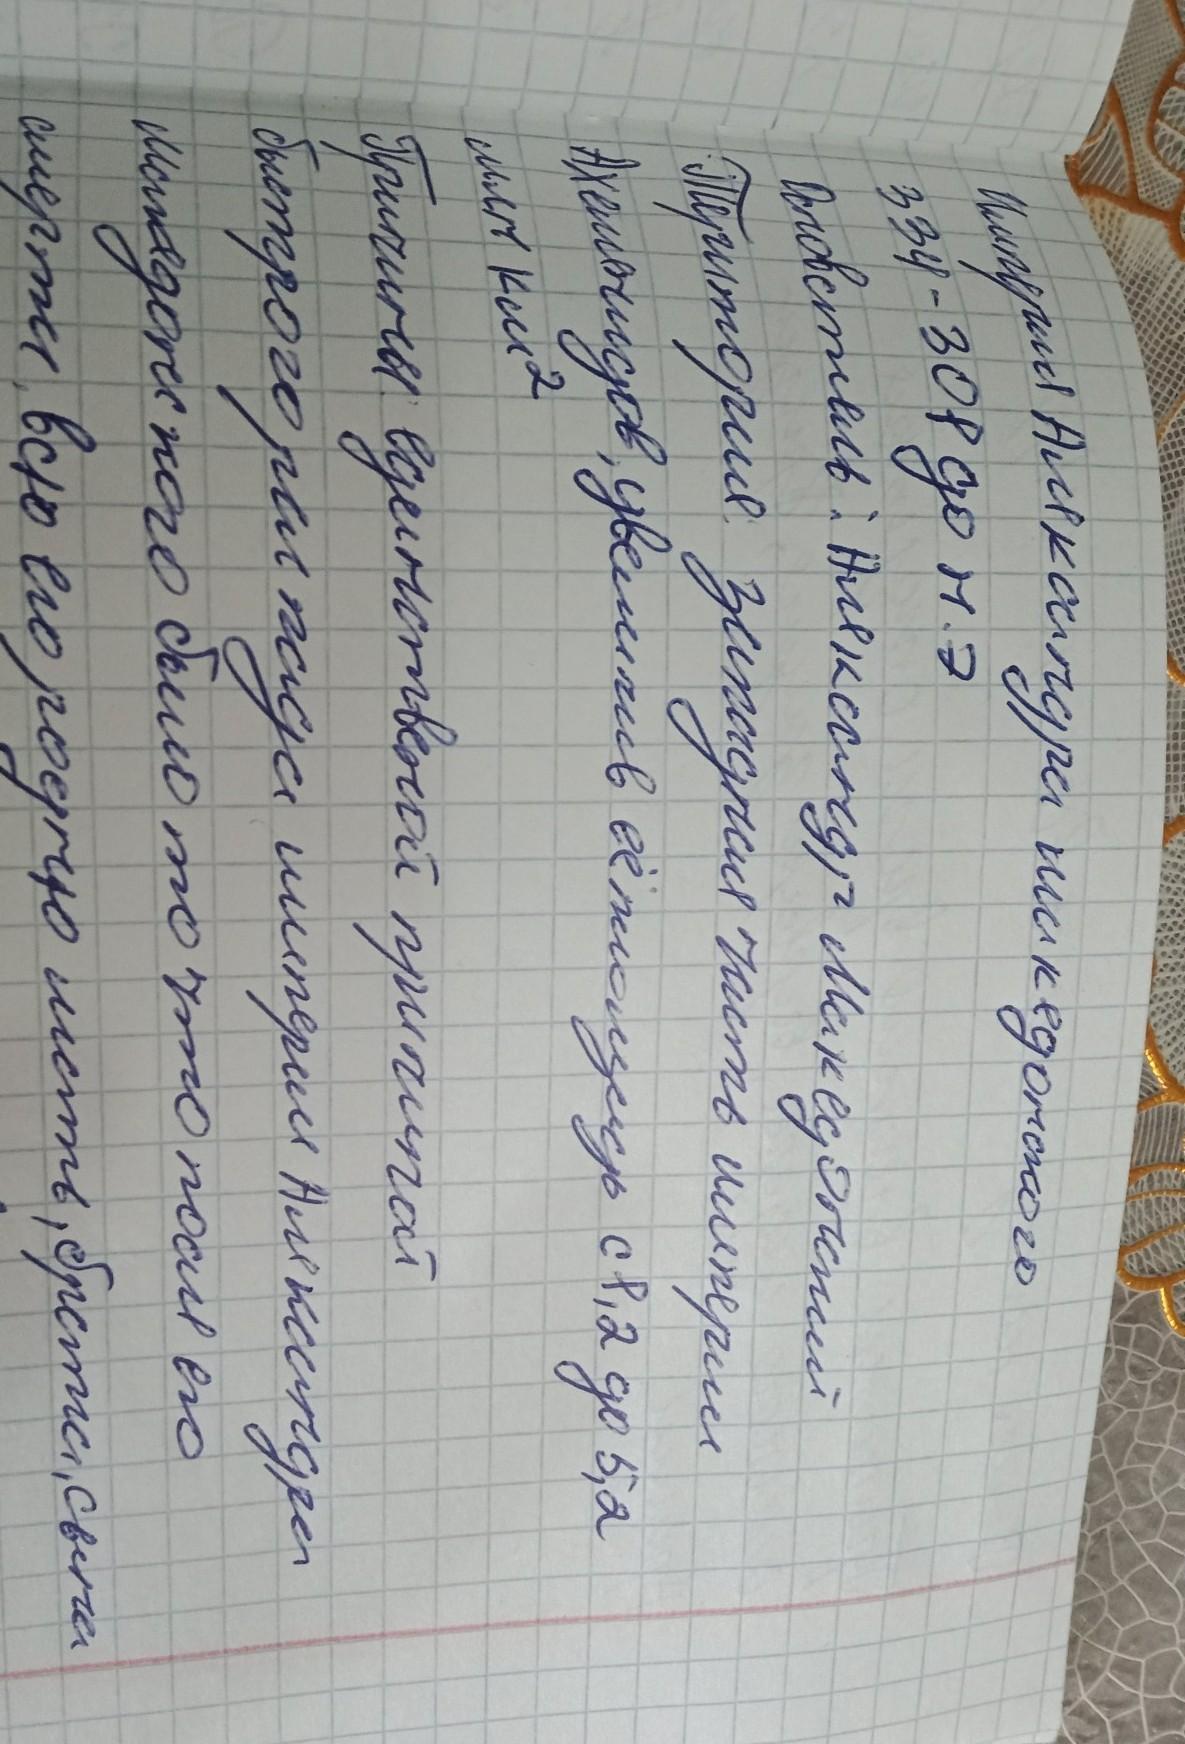 Империя Александра македонского
334-308 до н.э
Основатель: Александр Македонский
Территория: Западная часть империи
Ахеменидов, увеличив её площадь с 8,2 до 5,2
млн км²
Причины: единственной причиной
быстрого распада империи Александра
Македонского было то что после его
смерти, всю его родню мать, брата, сына